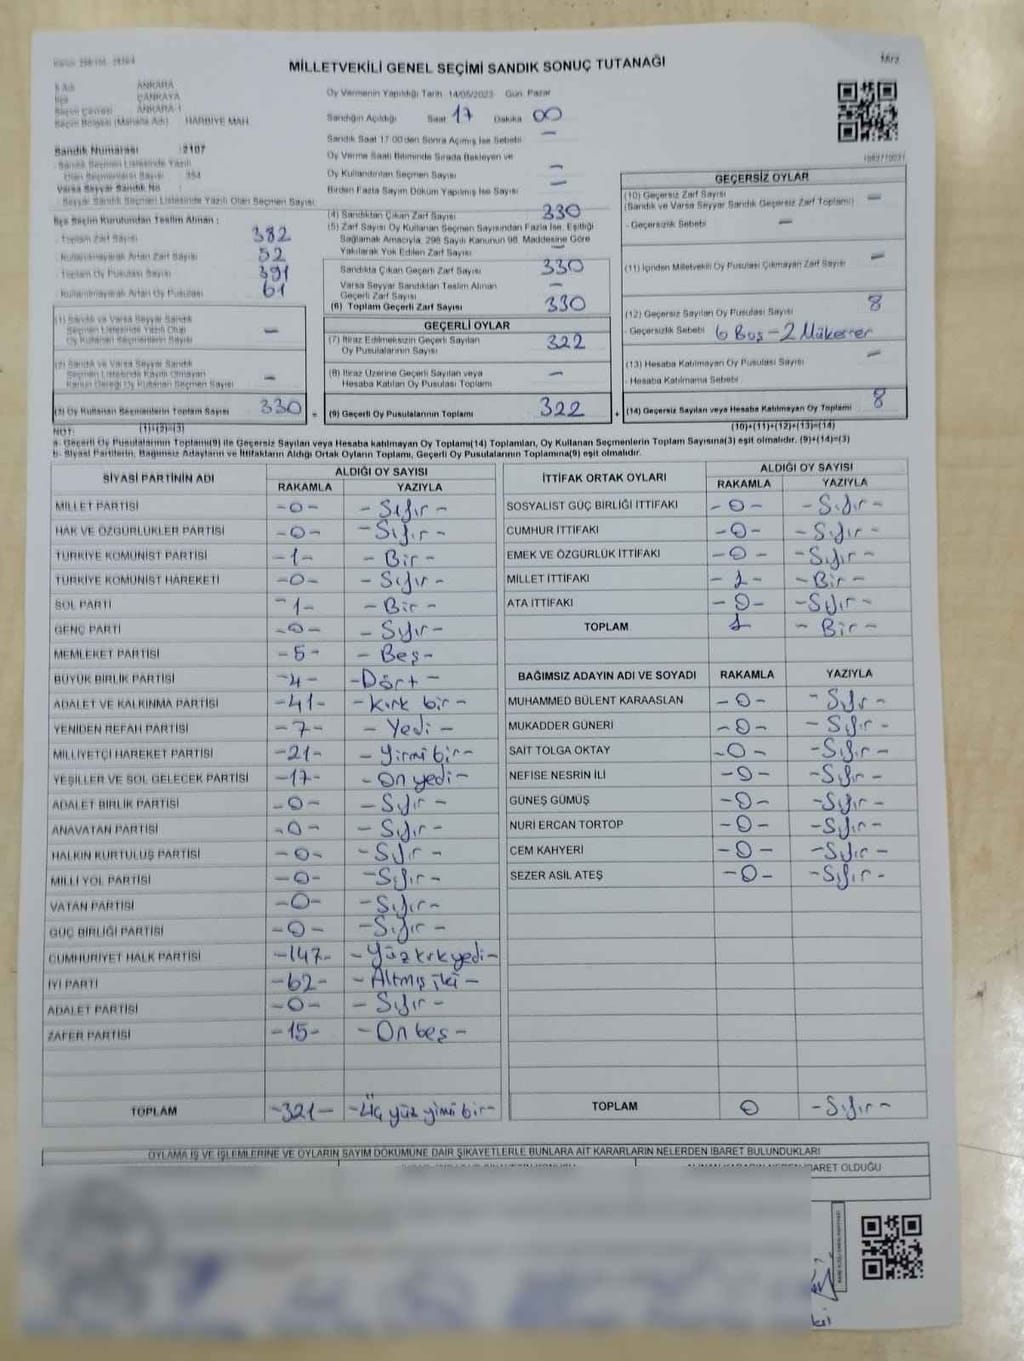 MİLLETVEKİLİ GENEL SEÇİMİ SANDIK SONUÇ TUTANAĞI
ANKARA
ÇANKAYA
ANKARA 1
Seçim Bölgesi (Mahalle Adı) HARBİYE MAH.
Sandık Numarası :2107
Oy Vermenin Yapıldığı Tarih 14/05/2023 Gün Pazar
Sandığın Açıldığı Saat 17 Dakika 00
Sandık Saat 17:00'den Sonra Açılmış İse Sebebi —
Oy Verme Saati Bitiminde Sırada Bekleyen ve
Oy Kullandırılan Seçmen Sayısı —
Birden Fazla Sayım Döküm Yapılmış İse Sayısı —
İlçe Seçim Kurulundan Teslim Alınan :
Toplam Zarf Sayısı 382
Kullanılmayarak Artan Zarf Sayısı 52
Toplam Oy Pusulası Sayısı 391
Kullanılmayarak Artan Oy Pusulası 61
(3) Oy Kullanan Seçmenlerin Toplam Sayısı 330
(1)+(2)=(3)
(4) Sandıktan Çıkan Zarf Sayısı 330
(5) Zarf Sayısı Oy Kullanan Seçmen Sayısından Fazla İse, Eşitliği
Sağlamak Amacıyla, 298 Sayılı Kanunun 98. Maddesine Göre
Yakılarak Yok Edilen Zarf Sayısı —
Sandıkta Çıkan Geçerli Zarf Sayısı 330
Varsa Seyyar Sandıktan Teslim Alınan
Geçerli Zarf Sayısı —
(6) Toplam Geçerli Zarf Sayısı 330
GEÇERLİ OYLAR
(7) İtiraz Edilmeksizin Geçerli Sayılan
Oy Pusulalarının Sayısı 322
(8) İtiraz Üzerine Geçerli Sayılan veya
Hesaba Katılan Oy Pusulası Toplamı —
(9) Geçerli Oy Pusulalarının Toplamı 322
GEÇERSİZ OYLAR
(10) Geçersiz Zarf Sayısı —
(Sandık ve Varsa Seyyar Sandık Geçersiz Zarf Toplamı)
- Geçersizlik Sebebi —
(11) İçinden Milletvekili Oy Pusulası Çıkmayan Zarf Sayısı —
(12) Geçersiz Sayılan Oy Pusulası Sayısı 8
- Geçersizlik Sebebi 6 Boş - 2 Mükerrer
(13) Hesaba Katılmayan Oy Pusulası Sayısı —
- Hesaba Katılmama Sebebi
(14) Geçersiz Sayılan veya Hesaba Katılmayan Oy Toplamı 8
(10)+(11)+(12)+(13)=(14)
NOT:
a- Geçerli Oy Pusulalarının Toplamı(9) ile Geçersiz Sayılan veya Hesaba katılmayan Oy Toplamı(14) Toplamları, Oy Kullanan Seçmenlerin Toplam Sayısına(3) eşit olmalıdır. (9)+(14)=(3)
b- Siyasi Partilerin, Bağımsız Adayların ve İttifakların Aldığı Ortak Oyların Toplamı, Geçerli Oy Pusulalarının Toplamına(9) eşit olmalıdır.
SİYASİ PARTİNİN ADI ALDIĞI OY SAYISI
RAKAMLA YAZIYLA
MİLLET PARTİSİ -0- - Sıfır -
HAK VE ÖZGÜRLÜKLER PARTİSİ -0- - Sıfır -
TÜRKİYE KOMÜNİST PARTİSİ -1- - Bir -
TÜRKİYE KOMÜNİST HAREKETİ -0- - Sıfır -
SOL PARTİ -1- - Bir -
GENÇ PARTİ -0- - Sıfır -
MEMLEKET PARTİSİ -5- - Beş -
BÜYÜK BİRLİK PARTİSİ -4- - Dört -
ADALET VE KALKINMA PARTİSİ -41- - Kırk bir -
YENİDEN REFAH PARTİSİ -7- - Yedi -
MİLLİYETÇİ HAREKET PARTİSİ -21- - Yirmi bir -
YEŞİLLER VE SOL GELECEK PARTİSİ -17- - On yedi -
ADALET BİRLİK PARTİSİ -0- - Sıfır -
ANAVATAN PARTİSİ -0- - Sıfır -
HALKIN KURTULUŞ PARTİSİ -0- - Sıfır -
MİLLİ YOL PARTİSİ -0- - Sıfır -
VATAN PARTİSİ -0- - Sıfır -
GÜÇ BİRLİĞİ PARTİSİ -0- - Sıfır -
CUMHURİYET HALK PARTİSİ -147- - Yüz kırk yedi -
İYİ PARTİ -62- - Altmış iki -
ADALET PARTİSİ -0- - Sıfır -
ZAFER PARTİSİ -15- - On beş -
TOPLAM -321- - Üç yüz yimi bir -
İTTİFAK ORTAK OYLARI ALDIĞI OY SAYISI
RAKAMLA YAZIYLA
SOSYALİST GÜÇ BİRLİĞİ İTTİFAKI -0- - Sıfır -
CUMHUR İTTİFAKI -0- - Sıfır -
EMEK VE ÖZGÜRLÜK İTTİFAKI -0- - Sıfır -
MİLLET İTTİFAKI -1- - Bir -
ATA İTTİFAKI -0- - Sıfır -
TOPLAM 1 - Bir -
BAĞIMSIZ ADAYIN ADI VE SOYADI RAKAMLA YAZIYLA
MUHAMMED BÜLENT KARAASLAN -0- - Sıfır -
MUKADDER GÜNERİ -0- - Sıfır -
SAİT TOLGA OKTAY -0- - Sıfır -
NEFİSE NESRİN İLİ -0- - Sıfır -
GÜNEŞ GÜMÜŞ -0- - Sıfır -
NURİ ERCAN TORTOP -0- - Sıfır -
CEM KAHYERİ -0- - Sıfır -
SEZER ASİL ATEŞ -0- - Sıfır -
TOPLAM 0 - Sıfır -
OYLAMA İŞ VE İŞLEMLERİNE VE OYLARIN SAYIM DÖKÜMÜNE DAİR ŞİKAYETLERLE BUNLARA AİT KARARLARIN NELERDEN İBARET BULUNDUKLARI
İBARET OLDUĞU